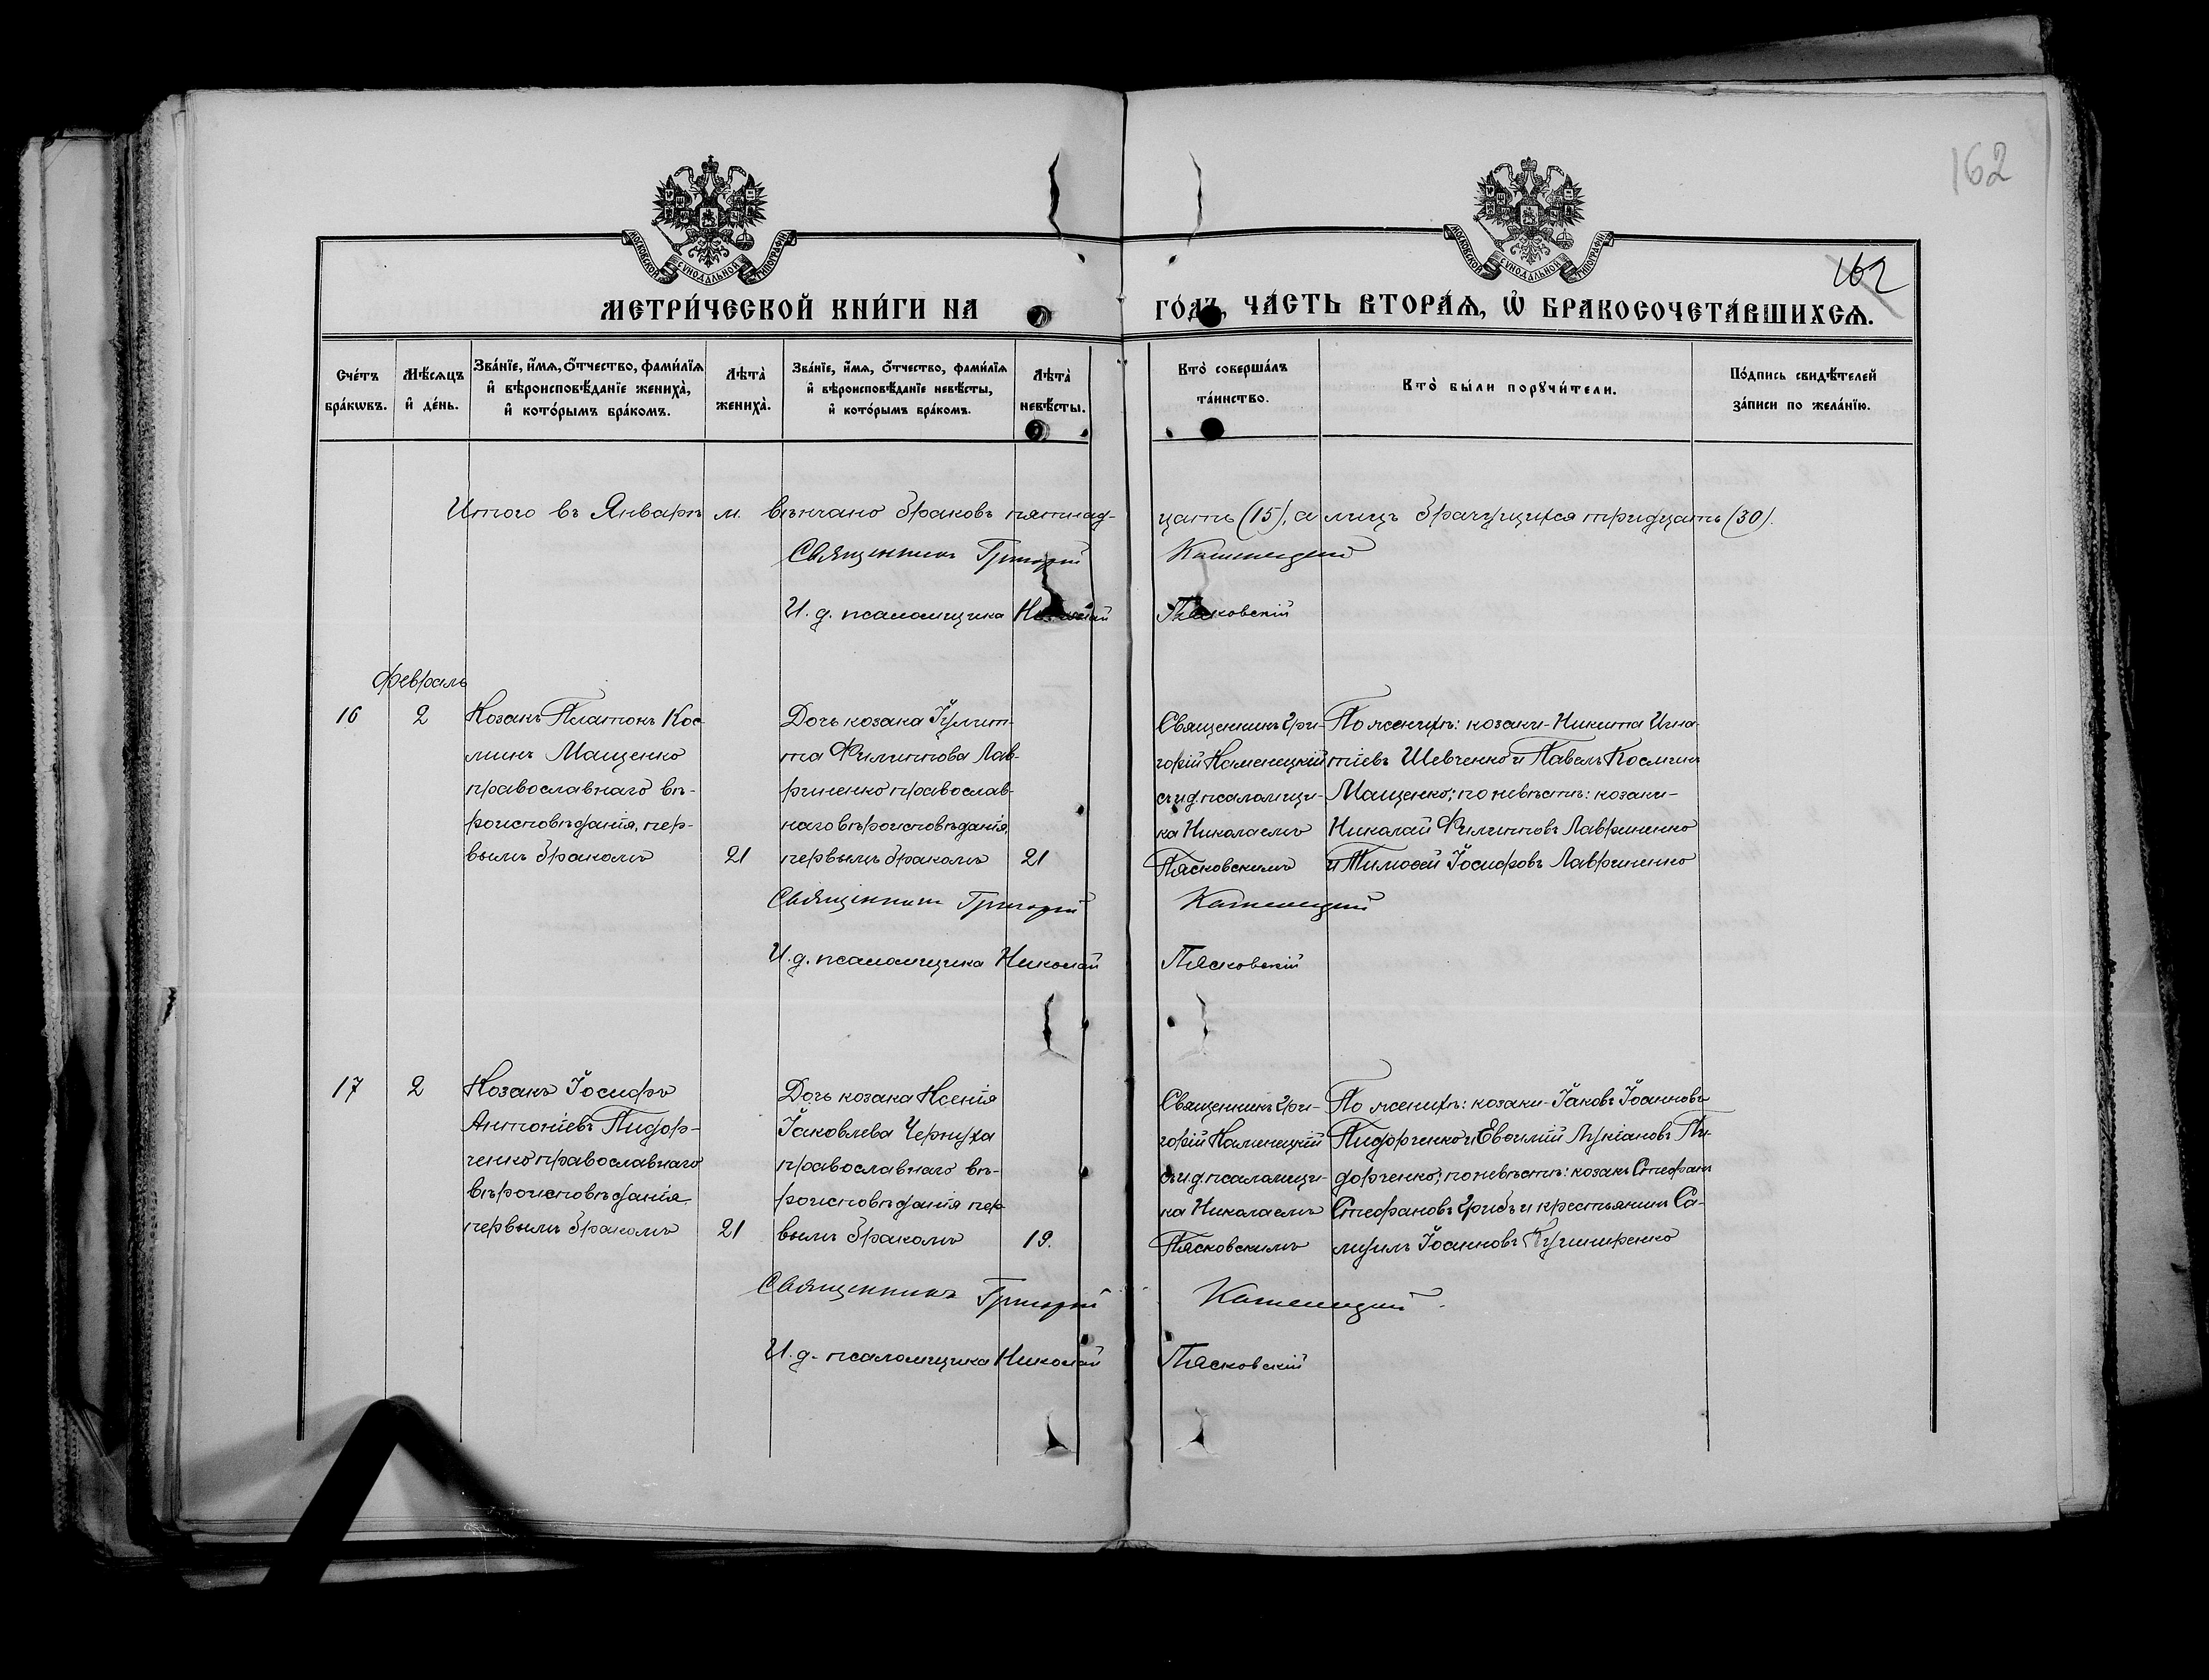 162
162
МОСКОВСКОЙ СѴНОДАЛЬНОЙ ТИПОГРАФІИ
МОСКОВСКОЙ СѴНОДАЛЬНОЙ ТИПОГРАФІИ
МЕТРИ́ЧЕСКОЙ КНИ́ГИ НА ГО́ДЪ, ЧА́СТЬ ВТОРА́Ѧ, Ѡ҆ БРАКОСОЧЕТА́ВШИХСѦ.
Сче́тъ бра́кѡвъ.
Мѣ́сѧцъ и҆ де́нь.
Зва́нїе, и҆́мѧ, ѻ҆́тчество, фами́лїѧ
и҆ вѣроисповѣ́данїе жениха̀,
и҆ кото́рымъ бра́комъ.
Лѣта̀ жениха̀.
Зва́нїе, и҆́мѧ, ѻ҆́тчество, фами́лїѧ
и҆ вѣроисповѣ́данїе невѣ́сты,
и҆ кото́рымъ бра́комъ.
Лѣта̀ невѣ́сты.
Кто̀ соверша́лъ
та́инство.
Кто̀ бы́ли порꙋчи́тели.
По́дпись свидѣ́телей
за́писи по жела́нїю.
Итого въ Январѣ м. вѣнчано браковъ пятнад-
цать (15), а лицъ брачущихся тридцать (30).
Священникъ Григорій Каменецкій
И. д. псаломщика Николай Пясковскій
Февраль
16
2
Козакъ Платонъ Кос-
минъ Мащенко
православнаго вѣ-
роисповѣданія, пер-
вымъ бракомъ
21
Дочь козака Іулит-
та Филиппова Лав-
риненко православ-
наго вѣроисповѣданія,
первымъ бракомъ
21
Священникъ Гри-
горій Каменецкій
съ и д псаломщи-
ка Николаемъ
Пясковскимъ
По женихѣ: козаки - Никита Игна-
тіевъ Шевченко и Павелъ Косминъ
Мащенко; по невѣстѣ: козаки -
Николай Филипповъ Лавриненко
и Тимоѳей Іосифовъ Лавриненко
Священникъ Григорій Каменецкій
И. д. псаломщика Николай Пясковскій
17
2
Козакъ Іосифъ
Антоніевъ Пидор-
ченко православнаго
вѣроисповѣданія
первымъ бракомъ
21
Дочь козака Ксенія
Іаковлева Чернуха
православнаго вѣ-
роисповѣданія пер-
вымъ бракомъ
19.
Священникъ Гри-
горій Каменецкій
съ и д псаломщи-
ка Николаемъ
Пясковскимъ
По женихѣ: козаки - Іаковъ Іоанновъ
Пидорченко и Евѳимій Лукіановъ Пи-
дорченко; по невѣстѣ: козакъ Стефанъ
Стефановъ Грибъ и крестьянинъ Са-
муилъ Іоанновъ Кушниренко
Священникъ Григорій Каменецкій.
И. д. псаломщика Николай Пясковскій